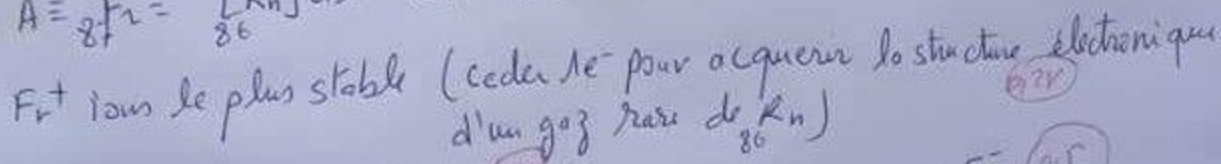 A ≡ 87Fr = 86[Rn]
Fr+ ions le plus stable (ceder 1e- pour acquerir la structure électronique
d'un gaz rare de 86Rn)